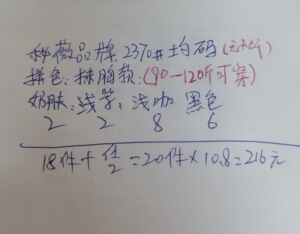 秘薇品牌 2370# 均码
抹胸款:(90-120斤可穿)
奶肤: 浅 浅咖 黑色
2 2 8 6
18件+ 2 =20件×10.8=216元